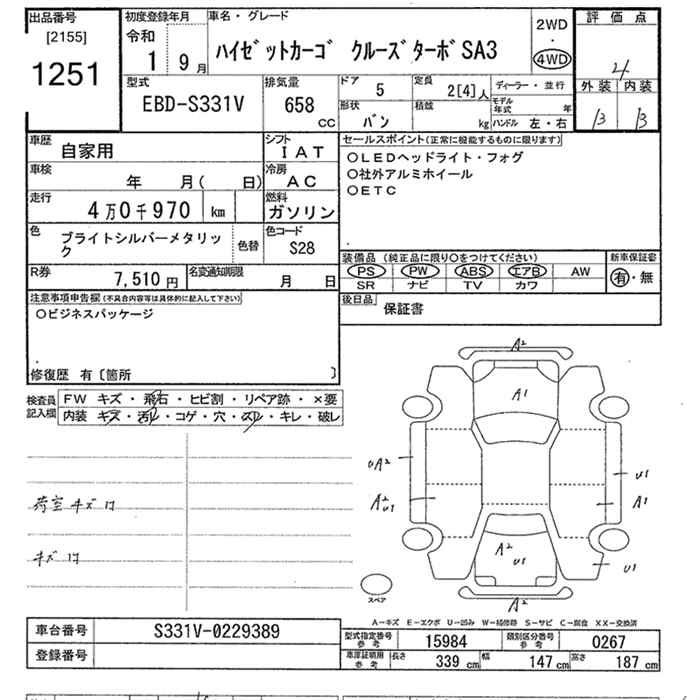 出品番号
[2155]
1251
初度登録年月
令和
1 9月
車名・グレード
ハイゼットカーゴ クルーズターボSA3
2WD
・
4WD
評価点
4
外装 内装
B B
型式
EBD-S331V
排気量
658
CC
ドア
5
定員
2[4]人
形状
バン
積載
kg
ディーラー・並行
モデル年式 年
ハンドル 左・右
車歴
自家用
シフト
IAT
車検
年 月( 日)
冷房
AC
走行
4万0千970 km
燃料
ガソリン
色
ブライトシルバーメタリック
色替
色コード
S28
R券
7,510円
名変通知期限
月 日
セールスポイント(正常に機能するものに限ります)
○LEDヘッドライト・フォグ
○社外アルミホイール
○ETC
装備品 (純正品に限り○をつけてください)
PS PW ABS エアB AW
SR ナビ TV カワ
新車保証書
有・無
後日品
保証書
注意事項申告欄(不具合内容等は具体的に記入して下さい)
○ビジネスパッケージ
修復歴 有〔箇所 〕
検査員記入欄
FW キズ・飛石・ヒビ割・リペア跡・×要
内装 キズ・汚れ・コゲ・穴・スレ・キレ・破レ
荷室キズ
キズ
A2
A1
UA2
A2
U1
U1
A1
A2
U1
U1
A2
スペア
A-キズ E-エクボ U-凹み W-補修跡 S-サビ C-腐食 XX-交換済
車台番号
S331V-0229389
登録番号
型式指定番号
参考
15984
類別区分番号
参考
0267
車庫証明用
参考
長さ 339 cm
幅 147 cm
高さ 187 cm